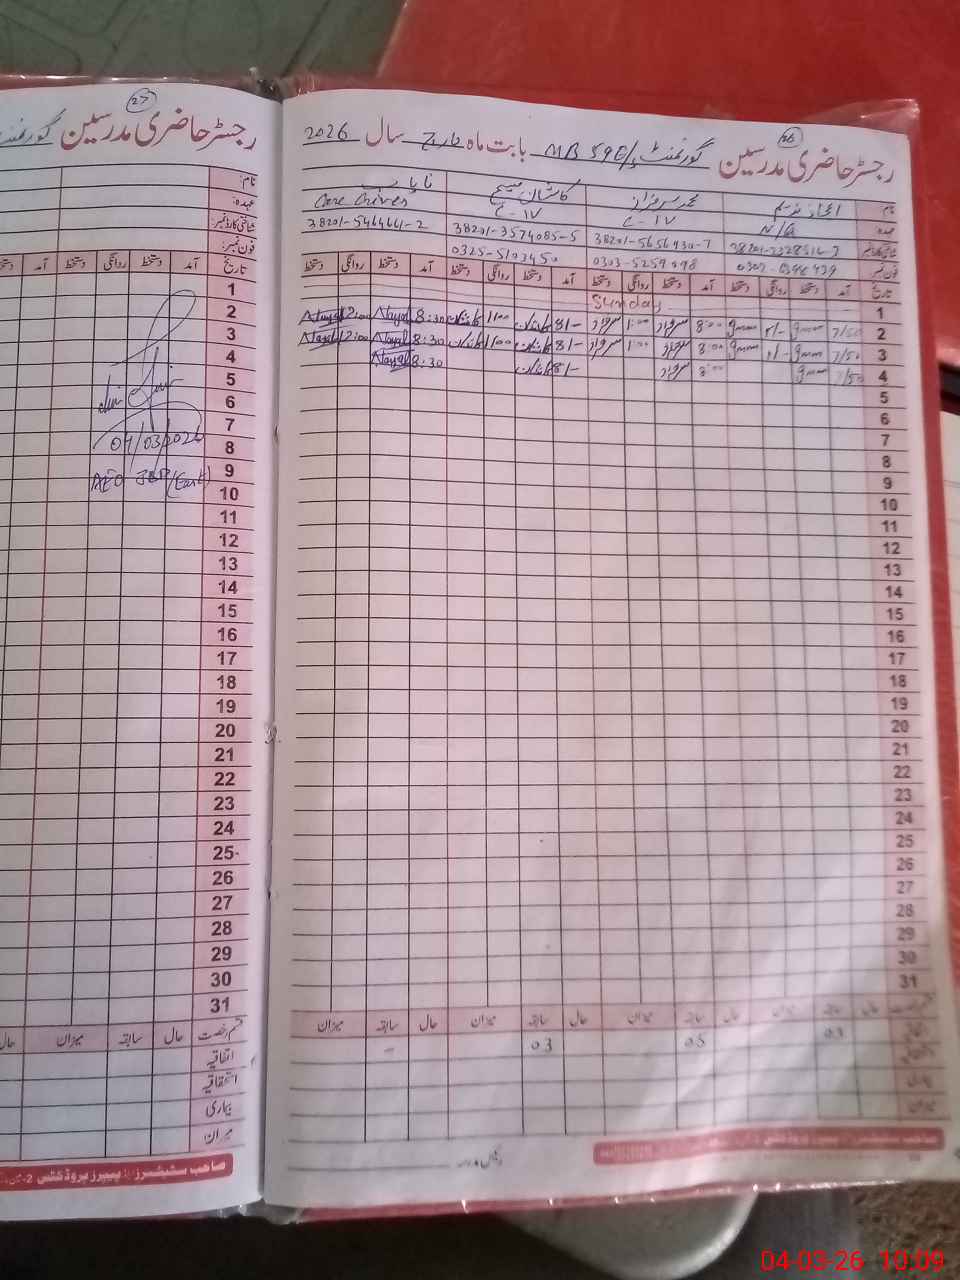 26
رجسٹر حاضری مدرسین گورنمنٹ MB 59E/ بابت ماہ مارچ سال 2026
نام اعجاز ندیم محمد سرفراز کاشان مسیح نایاب
عہدہ N/Q C-IV C-IV Care Givers
شناختی کارڈ نمبر 38201-5656930-7 38201-3574085-5 38201-5464661-2
فون نمبر 0303-5259898 0325-5103450
تاریخ آمد دستخط روانگی دستخط آمد دستخط روانگی دستخط آمد دستخط روانگی دستخط آمد دستخط روانگی دستخط
1 Sunday
2 7/50 8:00 سرفراز 1:00 سرفراز 8/- کاشان 1100 کاشان 8:30 Nayab 12:00 Nayab
3 7/50 8:00 سرفراز 1:00 سرفراز 8/- کاشان 1100 کاشان 8:30 Nayab 12:00 Nayab
4 7/50 8:00 سرفراز 8/- کاشان 8:30 Nayab
5
6
7
8
9
10
11
12
13
14
15
16
17
18
19
20
21
22
23
24
25
26
27
28
29
30
31
قسم رخصت حال سابقہ میزان حال سابقہ میزان حال سابقہ میزان حال سابقہ میزان
اتفاقیہ 05 03 -
میزان
رئیس مدرسہ
27
رجسٹر حاضری مدرسین گورنمنٹ
نام:
عہدہ:
شناختی کارڈ نمبر:
فون نمبر:
تاریخ آمد دستخط روانگی دستخط آمد دستخط
1
2
3
4
5
6
7
8
9
10
11
12
13
14
15
16
17
18
19
20
21
22
23
24
25
26
27
28
29
30
31
04/03/2026
AEO JBP (East)
قسم رخصت حال سابقہ میزان حال
اتفاقیہ
استحقاقیہ
بیماری
میزان
صاحب سٹیشنرز اینڈ پیپرز پروڈکٹس
04-03-26 10:09